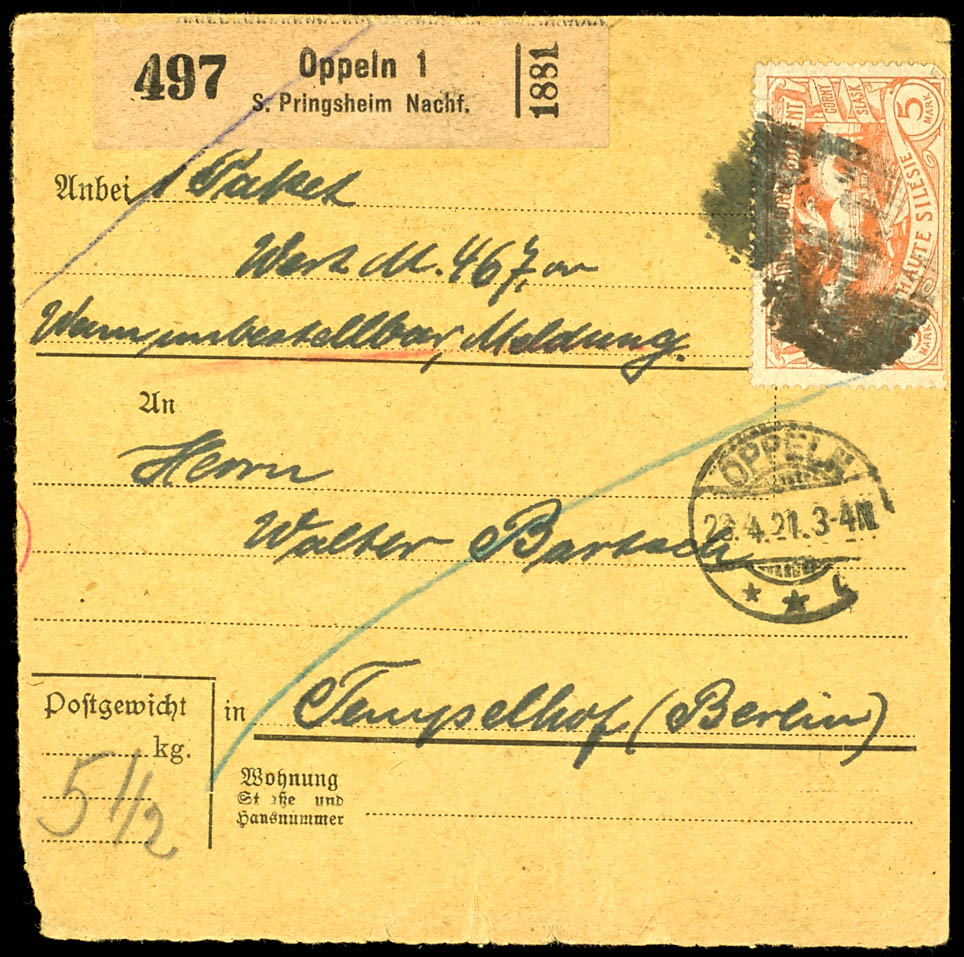 497
Oppeln 1
S. Pringsheim Nachf.
1881
Anbei 1 Paket
Wert M. 467,00
Wenn unbestellbar, Meldung.
GORNY
ŚLĄSK
5
MARK
HAUTE SILESIE
MARK
An
Herrn
Walter Bartsch
OPPELN
4.21. 3-4N
Postgewicht
kg.
5 1/2
in Tempelhof (Berlin)
Wohnung
Straße und
Hausnummer